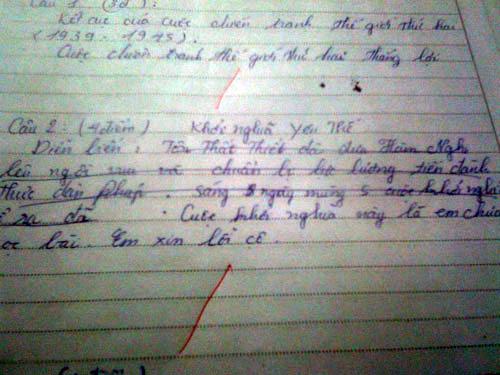 Câu 1 (3đ):
Kết cục của cuộc chiến tranh thế giới thứ hai
(1939 - 1945).
Cuộc chiến tranh thế giới thứ hai thắng lợi
Câu 2: (4điểm) Khởi nghĩa Yên Thế
Diễn biến: Tôn Thất Thuyết đã đưa Hàm Nghi
lên ngôi vua và chuẩn bị lực lượng tiến đánh
thực dân Pháp. sáng 5 ngày mùng 5 cuộc khởi nghĩa
ra đã. Cuộc khởi nghĩa này là em
bài. Em xin lỗi cô.